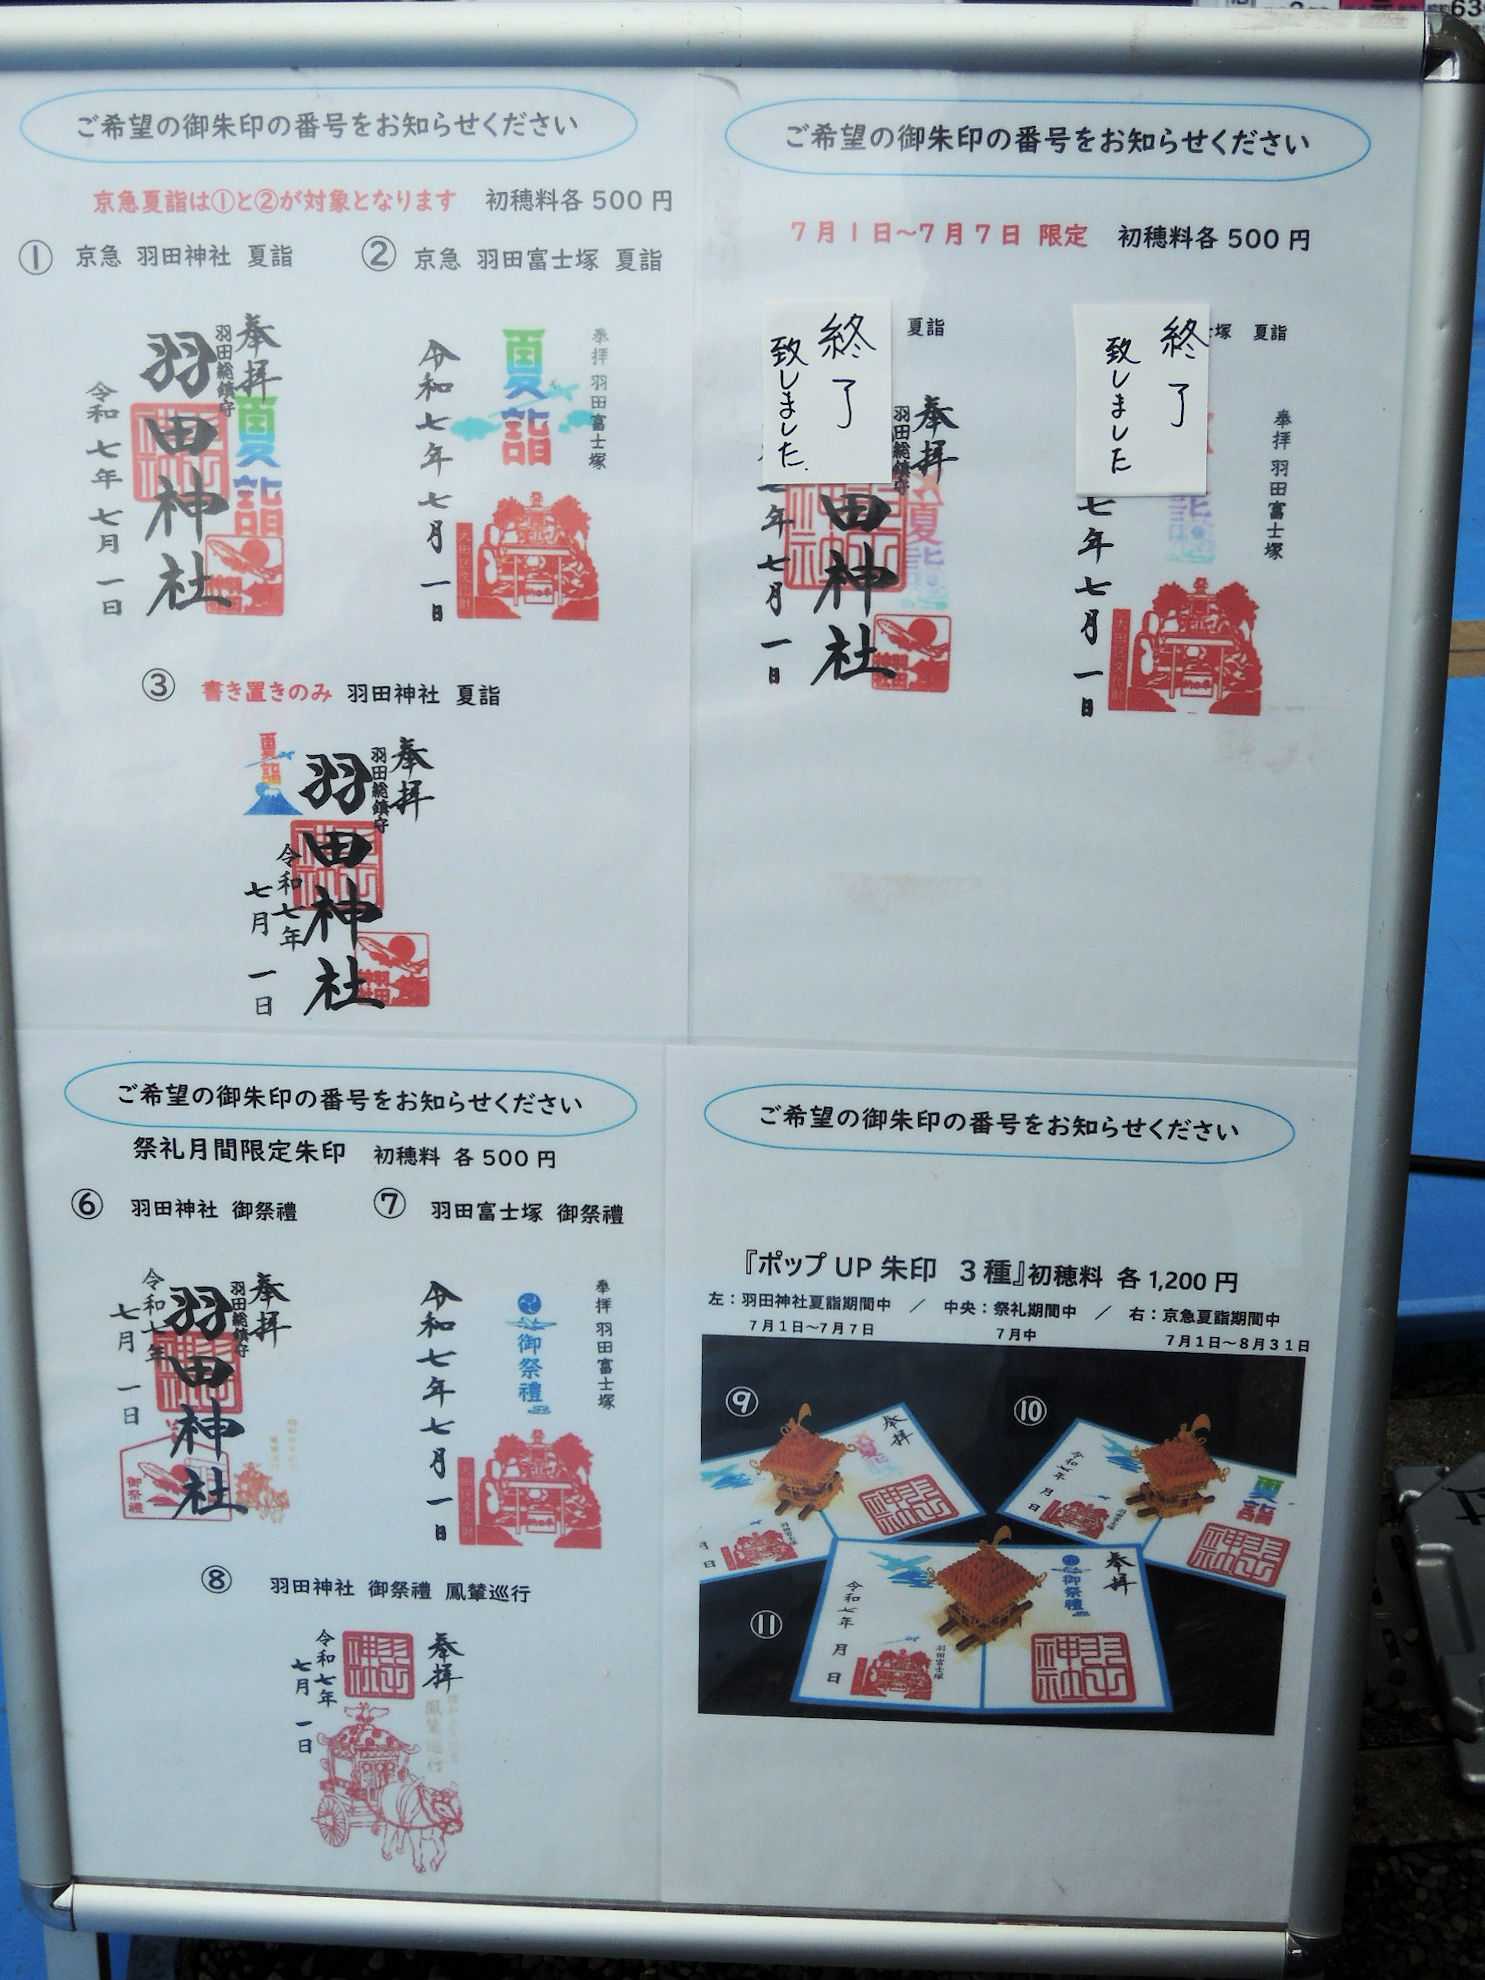 ご希望の御朱印の番号をお知らせください
京急夏詣は①と②が対象となります 初穂料各500円
① 京急 羽田神社 夏詣
奉拝
羽田総鎮守
夏詣
羽田神社
令和七年七月一日
② 京急 羽田富士塚 夏詣
奉拝 羽田富士塚
夏詣
令和七年七月一日
③ 書き置きのみ 羽田神社 夏詣
奉拝
羽田総鎮守
羽田神社
夏詣
令和七年
七月一日
ご希望の御朱印の番号をお知らせください
7月1日～7月7日 限定 初穂料各500円
夏詣
終了
致しました.
奉拝
羽田総鎮守
夏詣
田神社
七年七月一日
塚 夏詣
終了
致しました
奉拝 羽田富士塚
詣
七年七月一日
ご希望の御朱印の番号をお知らせください
祭礼月間限定朱印 初穂料 各500円
⑥ 羽田神社 御祭禮
奉拝
羽田総鎮守
羽田神社
令和七年
七月一日
御祭禮
⑦ 羽田富士塚 御祭禮
奉拝 羽田富士塚
御祭禮
令和七年七月一日
⑧ 羽田神社 御祭禮 鳳輦巡行
奉拝
鳳輦巡行
令和七年
七月一日
ご希望の御朱印の番号をお知らせください
『ポップUP朱印 3種』初穂料 各1,200円
左：羽田神社夏詣期間中 ／ 中央：祭礼期間中 ／ 右：京急夏詣期間中
7月1日～7月7日 7月中 7月1日～8月31日
⑨
奉拝
日
⑩
夏詣
令和七年 月 日
⑪
奉拝
御祭禮
羽田富士塚
令和七年 月 日